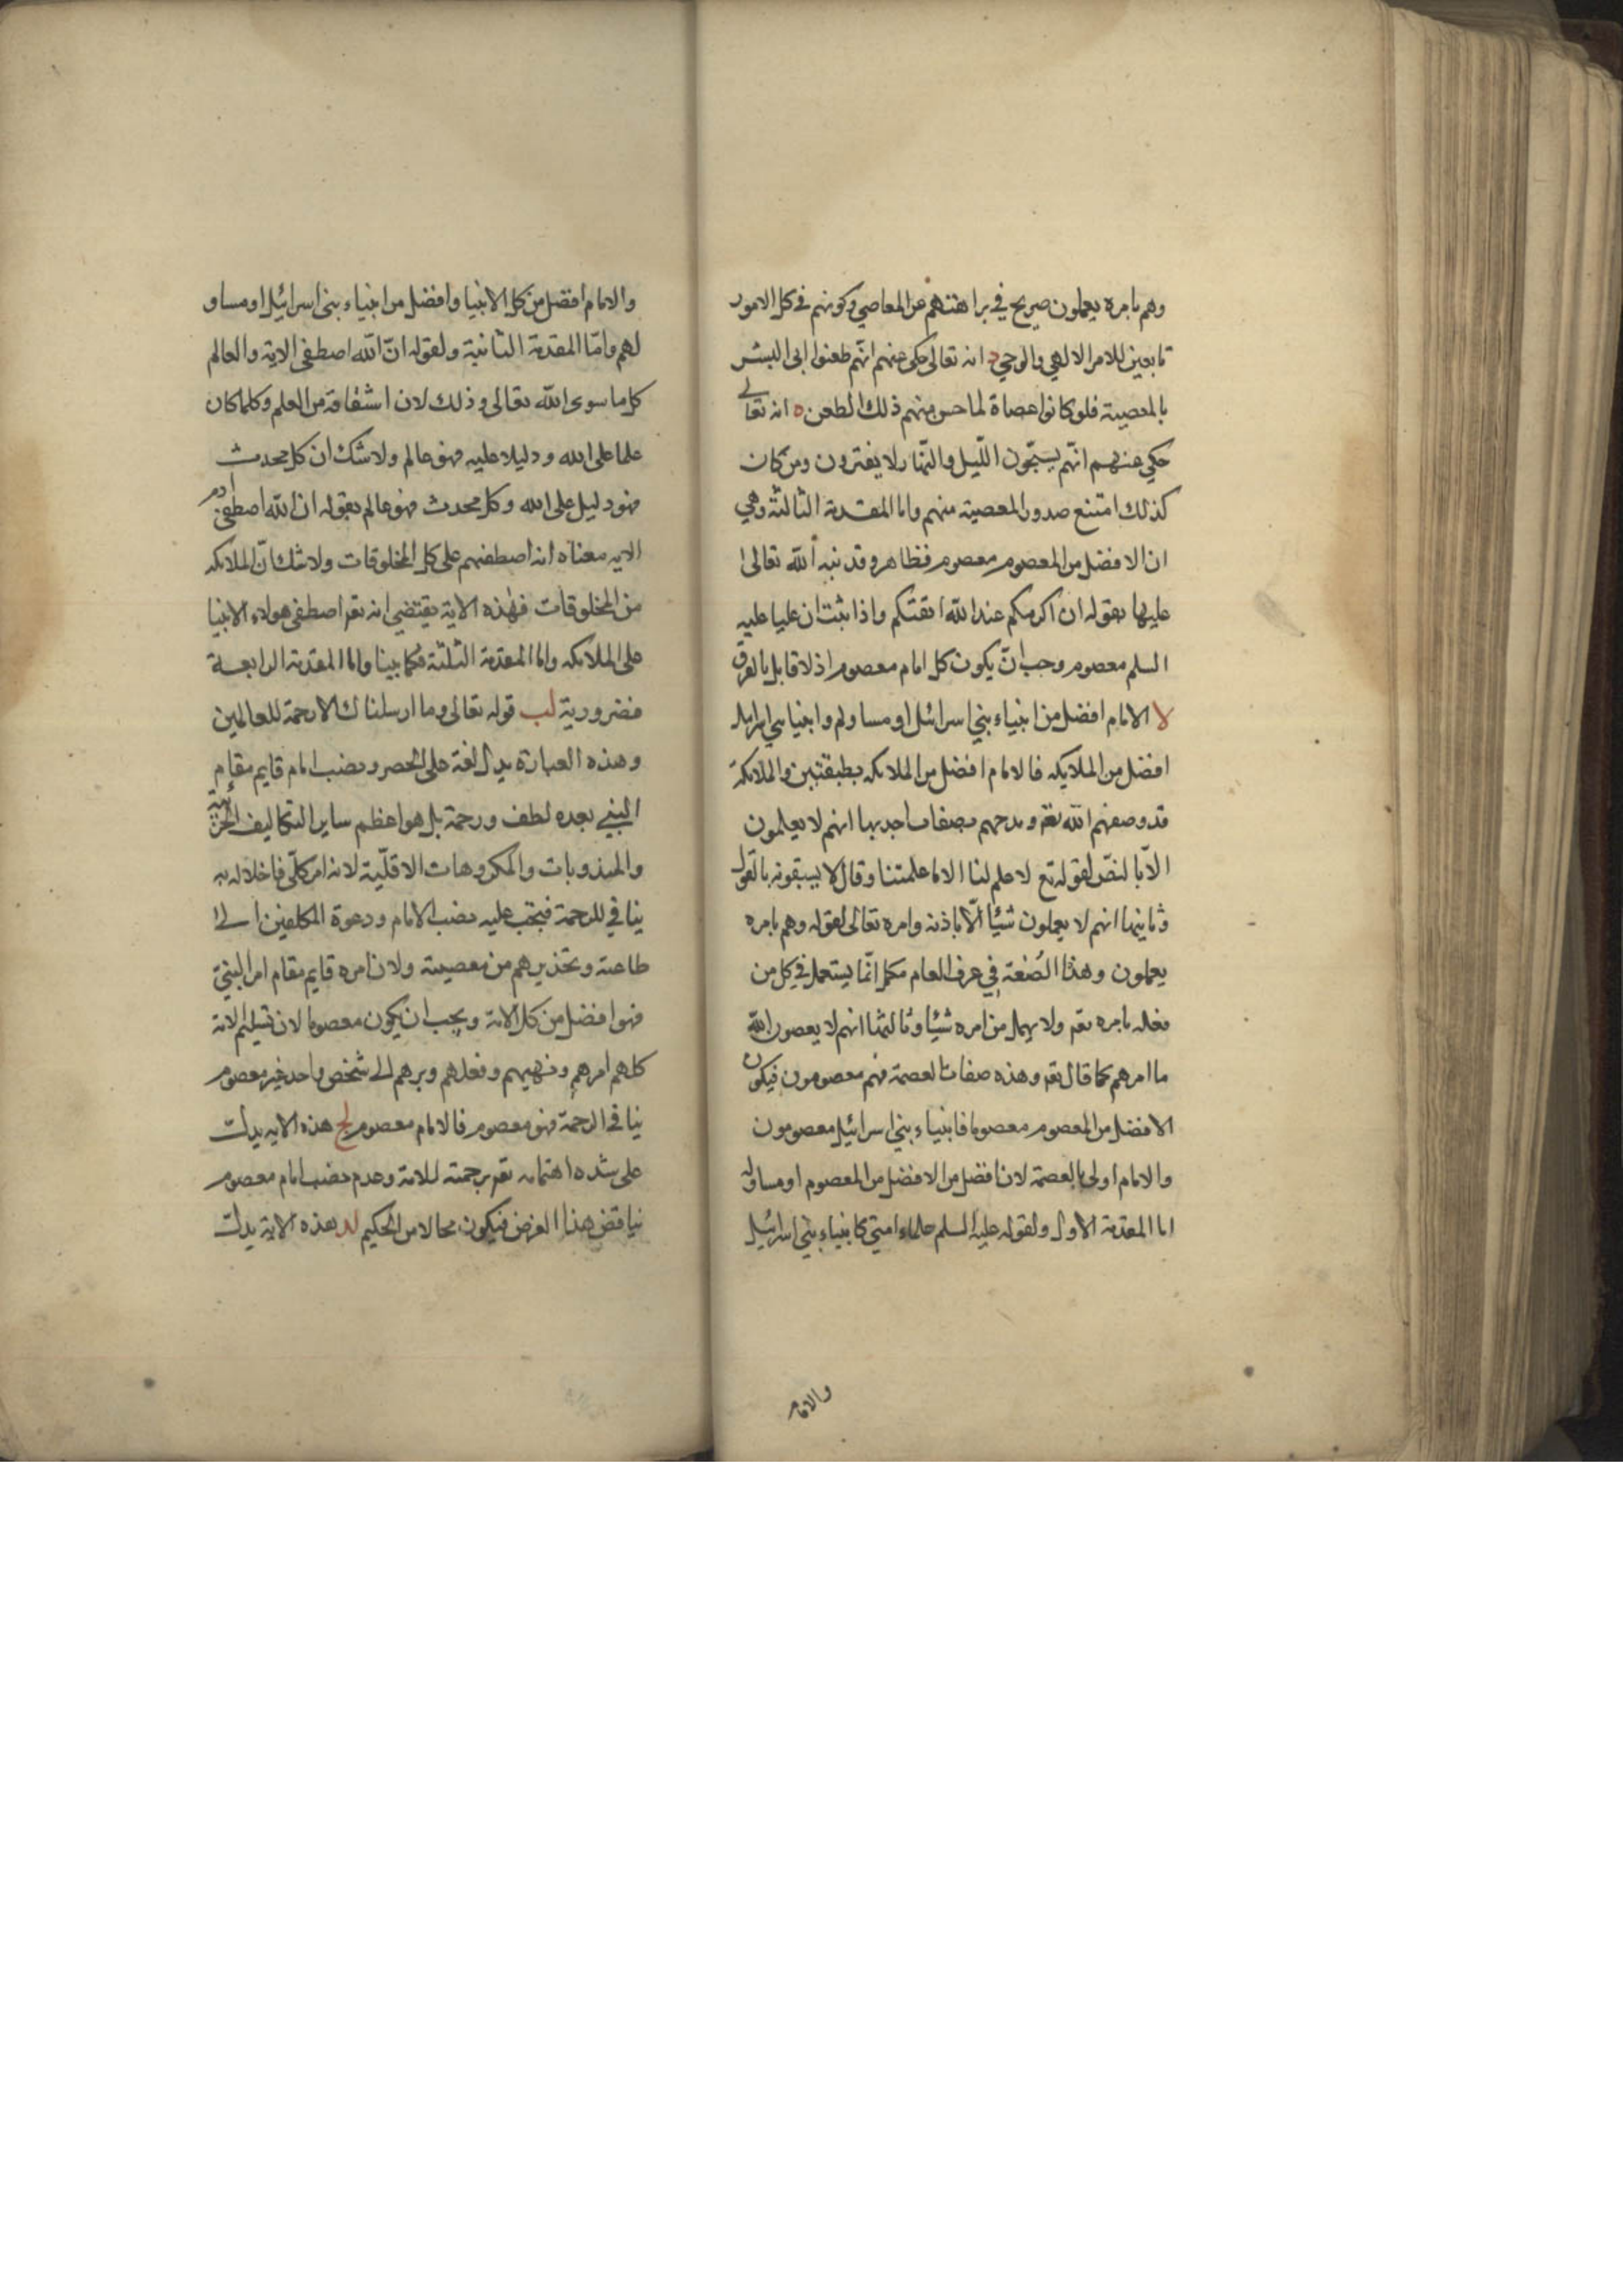 وهم بامره يعملون صريح في براهتهم عن المعاصي وكونهم في كل الامور
تابعين للامر الالهي والوحي د انه تعالى حكى عنهم انهم طعنوا في البشر
بالمعصية فلو كانوا عصاة لما حسن منهم ذلك الطعن ه انه تعالى
حكى عنهم انهم يسبحون الليل والنهار لا يفترون ومن كان
كذلك امتنع صدور المعصية منهم واما المقدمة الثالثة وهي
ان الافضل من المعصوم معصوم فظاهر وقد نبه الله تعالى
عليها بقوله ان اكرمكم عند الله اتقتكم واذا ثبت ان عليا عليه
السلم معصوم وجب ان يكون كل امام معصوم اذ لا قايل بالفرق
لا الامام افضل من انبياء بني اسرائيل او مساو لهم وانبياء بني اسرائيل
افضل من الملايكه فالامام افضل من الملايكه بطبقتين والملايكة
قد وصفهم الله تع ومدحهم بصفات احديها انهم لا يعلمون
الا بالنص لقوله تع لا علم لنا الا ما علمتنا وقال لا يسبقونه بالقول
وثانيها انهم لا يعملون شيئا الا باذنه وامره تعالى لقوله وهم بامره
يعملون وهذا الصفة في عرف العام انما يستعمل في كل من
فعله بامره تع ولا يهمل من امره شيئا وثالثها انهم لا يعصون الله
ما امرهم كما قال تع وهذه صفات العصمة فهم معصومون فيكون
الافضل من المعصوم معصوما فانبياء بني اسرائيل معصومون
والامام اولى بالعصمة لانه افضل من الافضل من المعصوم او مساو له
اما المقدمة الاول ولقوله عليه السلم علماء امتي كانبياء بني اسرائيل
والامام
والامام افضل من كل الانبيا وافضل من انبياء بني اسرائيل او مساو
لهم واما المقدمة الثانية ولقوله ان الله اصطفى الاية والعالم
كل ما سوى الله تعالى وذلك لان اشتقاقه من العلم وكلما كان
علما على الله ودليلا عليه فهو عالم ولا شك ان كل محدث
فهو دليل على الله وكل محدث فهو عالم بقوله ان الله اصطفى ادم
الايه معناه انه اصطفهم على كل المخلوقات ولا شك ان الملايكه
من المخلوقات فهذه الاية يقتضي انه تع اصطفى هولاء الانبيا
على الملايكه واما المقدمة الثلثة فكما بينا واما المقدمة الرابعة
فضرورية لب قوله تعالى وما ارسلناك الا رحمة للعالمين
وهذه العبارة يدل لغة على الحصر ونصب امام قايم مقام
النبي بعده لطف ورحمة بل هو اعظم ساير التكاليف الجزئية
والمندوبات والمكروهات الاقلية لانه امر كلي فاخلاله به
ينافي للرحمة فيجب عليه نصب الامام ودعوة المكلفين الى
طاعته وتحذيرهم من معصيته ولان امره قايم مقام امر النبي
فهو افضل من كل الامة ويجب ان يكون معصوما لان تسليم الامة
كلهم امرهم ونهيهم وفعلهم وبرهم الى شخص واحد غير معصوم
ينافي الرحمة فهو معصوم فالامام معصوم لج هذه الايه يدلت
على شده اهتمامه تع برحمته للامة وعدم نصب امام معصوم
يناقض هذا الغرض فيكون محالا من الحكيم لد هذه الاية يدلت